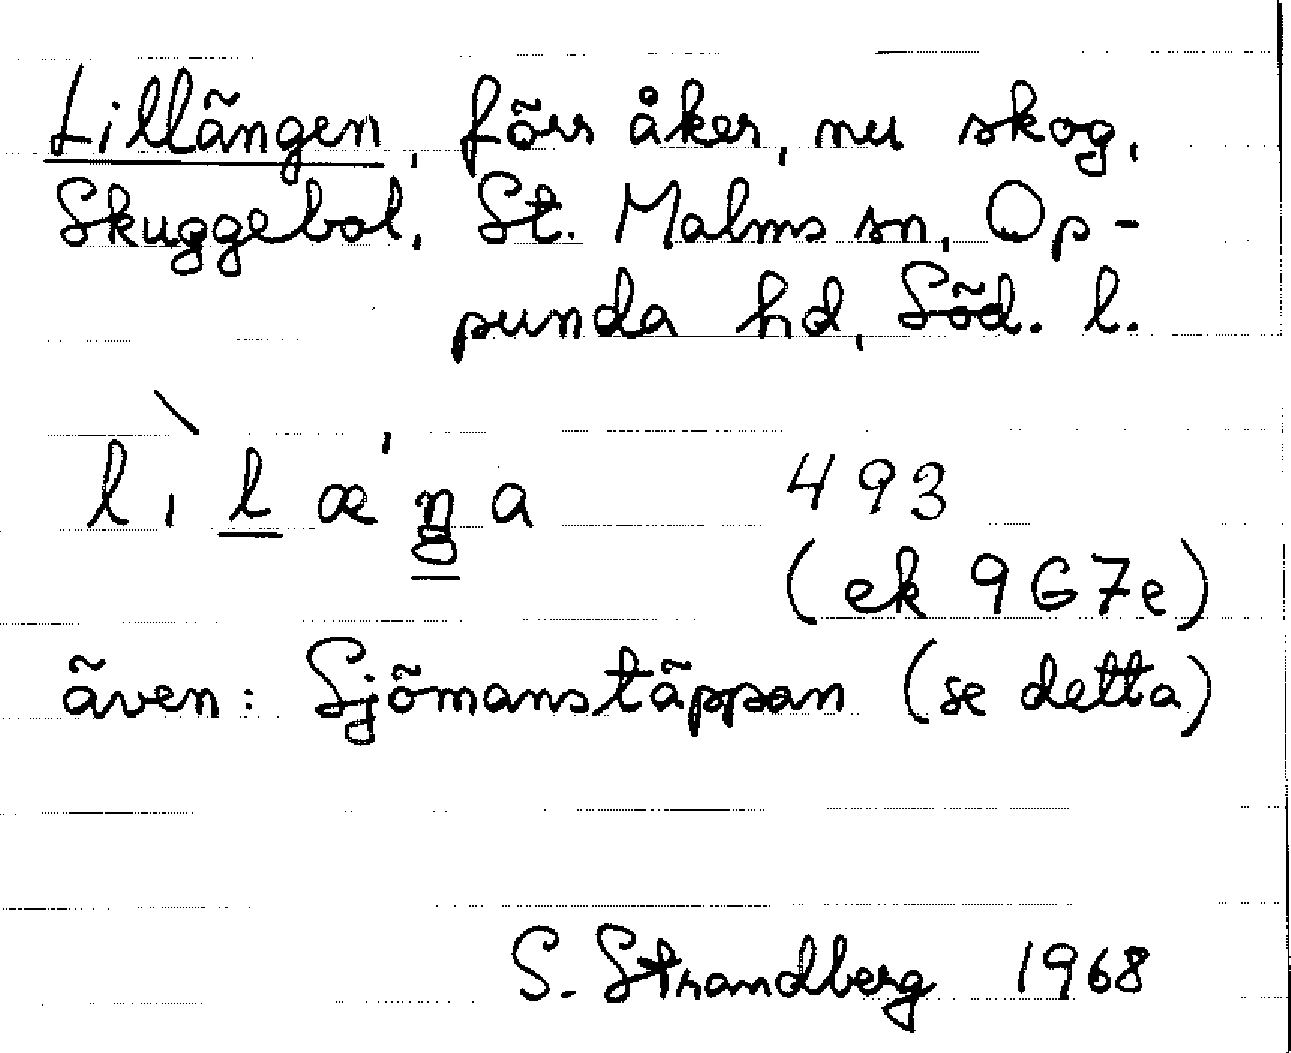 Lillängen, förr åker, nu skog,
Skuggebol, St. Malms sn, Op-
punda hd, Söd. l.
lìlæ'ŋa 493
(ek 9G7e)
även: Sjömanstäppan (se detta)
S. Strandberg 1968